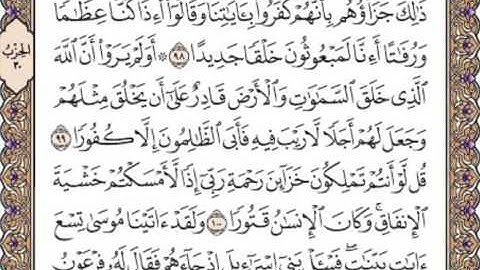 ذَٰلِكَ جَزَآؤُهُم بِأَنَّهُمْ كَفَرُوا۟ بِـَٔايَٰتِنَا وَقَالُوٓا۟ أَءِذَا كُنَّا عِظَٰمًا
وَرُفَٰتًا أَءِنَّا لَمَبْعُوثُونَ خَلْقًا جَدِيدًا ۝٩٨ ۞ أَوَلَمْ يَرَوْا۟ أَنَّ ٱللَّهَ
ٱلَّذِى خَلَقَ ٱلسَّمَٰوَٰتِ وَٱلْأَرْضَ قَادِرٌ عَلَىٰٓ أَن يَخْلُقَ مِثْلَهُمْ
وَجَعَلَ لَهُمْ أَجَلًا لَّا رَيْبَ فِيهِ فَأَبَى ٱلظَّٰلِمُونَ إِلَّا كُفُورًا ۝٩٩
قُل لَّوْ أَنتُمْ تَمْلِكُونَ خَزَآئِنَ رَحْمَةِ رَبِّىٓ إِذًا لَّأَمْسَكْتُمْ خَشْيَةَ
ٱلْإِنفَاقِ ۚ وَكَانَ ٱلْإِنسَٰنُ قَتُورًا ۝١٠٠ وَلَقَدْ ءَاتَيْنَا مُوسَىٰ تِسْعَ
ءَايَٰتٍۭ بَيِّنَٰتٍ ۖ فَسْـَٔلْ بَنِىٓ إِسْرَٰٓءِيلَ إِذْ جَآءَهُمْ فَقَالَ لَهُۥ فِرْعَوْنُ
الحزب
٣٠